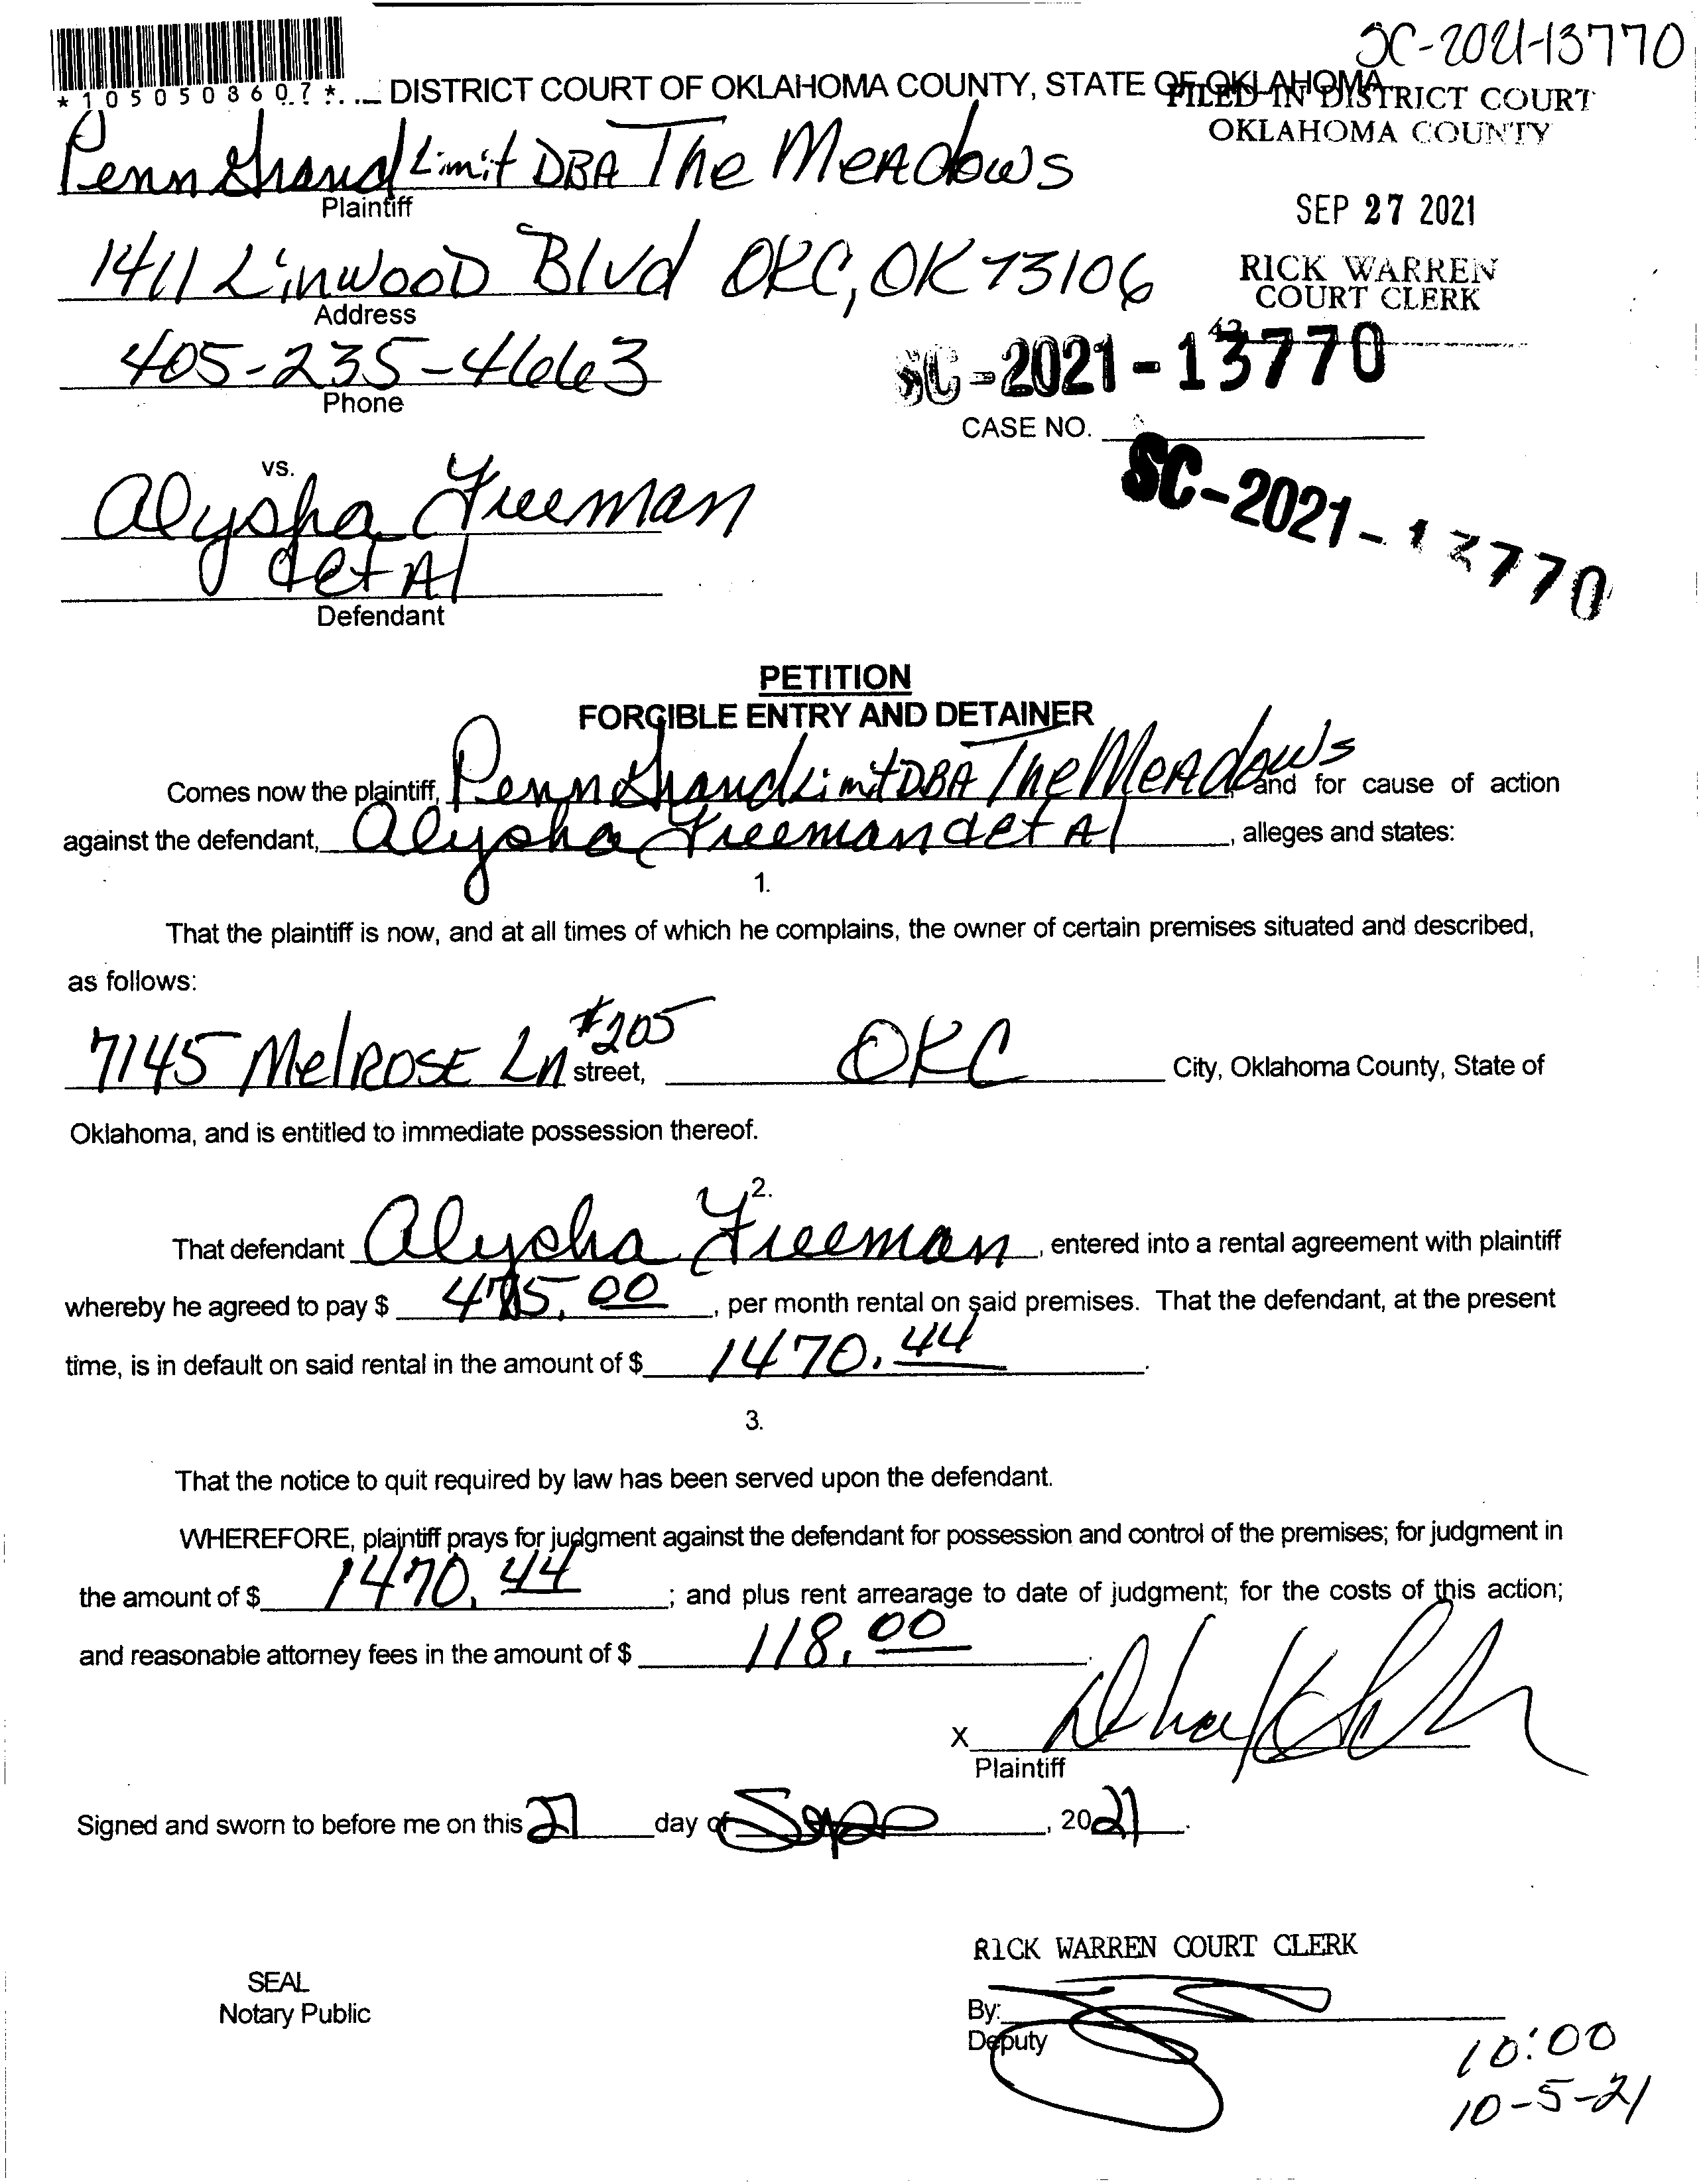 SC-2021-13770
*1050508607*
DISTRICT COURT OF OKLAHOMA COUNTY, STATE OF OKLAHOMA
FILED IN DISTRICT COURT
OKLAHOMA COUNTY
Penn Grand Limit DBA The Meadows
Plaintiff
SEP 27 2021
1411 Linwood Blvd OKC, OK 73106
Address
RICK WARREN
COURT CLERK
405-235-4663
Phone
SC-2021-13770
CASE NO.
SC-2021-13770
vs.
Alysha Freeman
et Al
Defendant
PETITION
FORCIBLE ENTRY AND DETAINER
Comes now the plaintiff, Penn Grand Limit DBA The Meadows and for cause of action
against the defendant, Alysha Freeman et Al, alleges and states:
1.
That the plaintiff is now, and at all times of which he complains, the owner of certain premises situated and described,
as follows:
7145 Melrose Ln #205 street, OKC City, Oklahoma County, State of
Oklahoma, and is entitled to immediate possession thereof.
2.
That defendant Alysha Freeman, entered into a rental agreement with plaintiff
whereby he agreed to pay $ 475.00, per month rental on said premises. That the defendant, at the present
time, is in default on said rental in the amount of $ 1470.44.
3.
That the notice to quit required by law has been served upon the defendant.
WHEREFORE, plaintiff prays for judgment against the defendant for possession and control of the premises; for judgment in
the amount of $ 1470.44; and plus rent arrearage to date of judgment; for the costs of this action;
and reasonable attorney fees in the amount of $ 118.00.
X
Plaintiff
Signed and sworn to before me on this 27 day of, 2021.
RICK WARREN COURT CLERK
SEAL
Notary Public
By:
Deputy
10:00
10-5-21